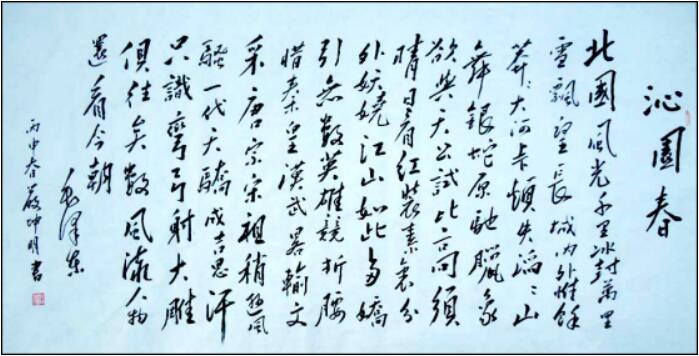 沁園春
北國風光千里冰封萬里
雪飄望長城內外惟餘
莽々大河上下頓失滔々山
舞銀蛇原馳臘象
欲與天公試比高須
晴日看紅裝素裹分
外妖嬈江山如此多嬌
引無數英雄競折腰
惜秦皇漢武畧輸文
采唐宗宋祖稍遜風
騷一代天驕成吉思汗
只識彎弓射大雕
俱往矣數風流人物
還看今朝
毛澤東
丙申春嚴坤明書